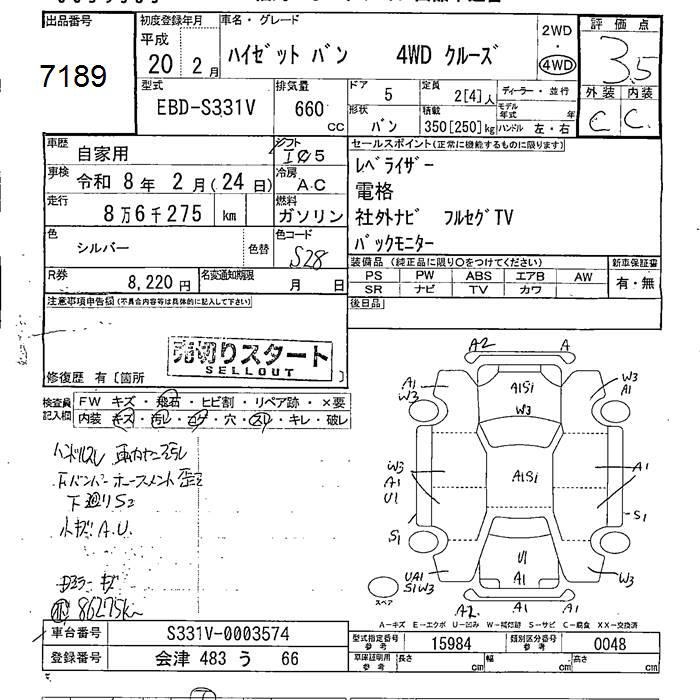 出品番号
7189
初度登録年月
平成
20 2月
車名・グレード
ハイゼット バン 4WD クルーズ
2WD
・
4WD
評価点
3.5
外装 内装
C C.
型式
EBD-S331V
排気量
660
cc
ドア
5
定員
2[4]人
ディーラー・並行
形状
バン
積載
350[250]kg
モデル年式 年
ハンドル 左・右
車歴
自家用
シフト
I 5
車検
令和 8年 2月(24日)
冷房
A.C
走行
8万6千275 km
燃料
ガソリン
色
シルバー
色替
色コード
S28
R券
8,220円
名変通知期限
月 日
セールスポイント(正常に機能するものに限ります)
レベライザー
電格
社外ナビ フルセグTV
バックモニター
装備品(純正品に限り○をつけてください)
PS PW ABS エアB AW
SR ナビ TV カワ
新車保証書
有・無
後日品
注意事項申告欄(不具合内容等は具体的に記入して下さい)
売切りスタート
SELLOUT
修復歴 有[箇所 ]
検査員記入欄
FW キズ・飛石・ヒビ割・リペア跡・×要
内装 キズ・汚レ・コゲ・穴・スレ・キレ・破レ
ハンドルスレ
下廻りS2
小キズA.U.
86275km
A2 A
A1
W3
A1Si
W3
W3
A1
W3
A1
U1
A1Si
A1
S1
S1
U1
A1
UA1
S1W3
W3
スペア
A2 A1 A1
A-キズ E-エクボ U-凹み W-補修跡 S-サビ C-腐食 XX-交換済
車台番号
S331V-0003574
登録番号
会津 483 う 66
型式指定番号
参考
15984
類別区分番号
参考
0048
車庫証明用
参考
長さ cm
幅 cm
高さ cm